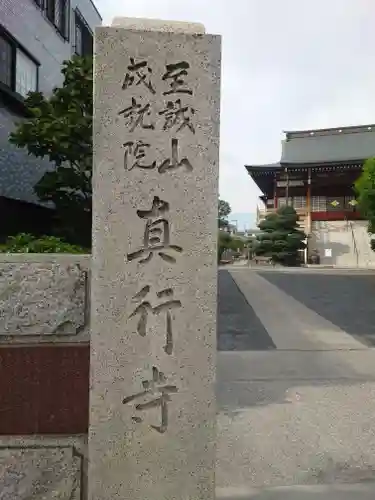 至誠山
成就院
真行寺